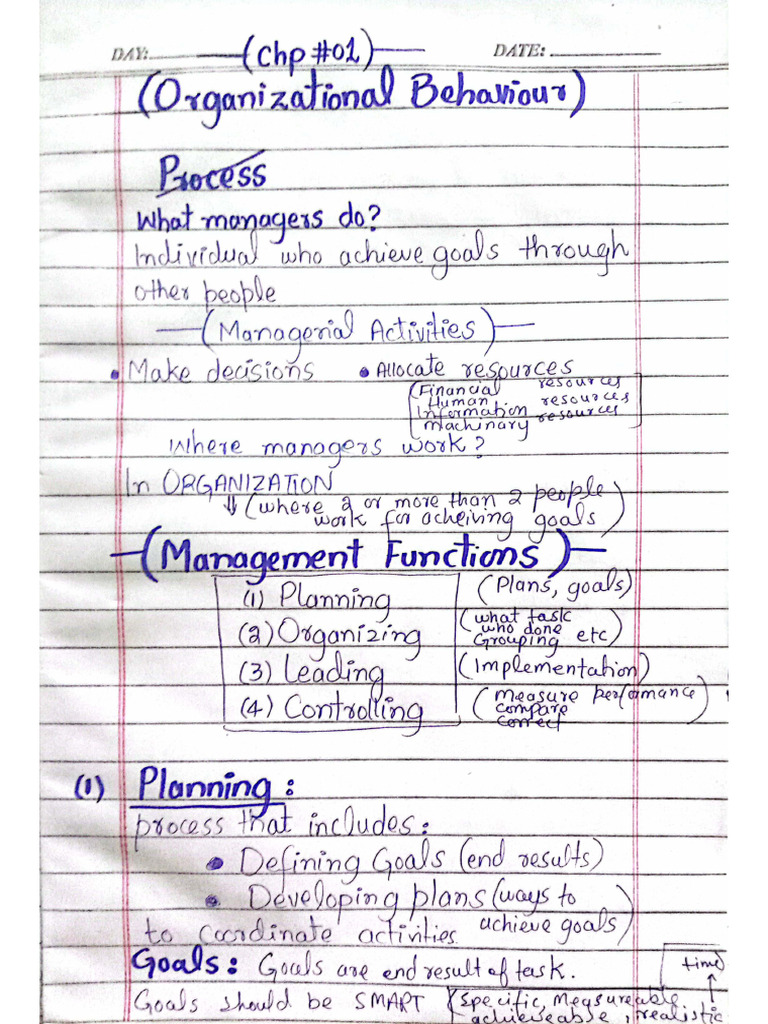 DAY: (Chp #01) DATE:
(Organizational Behaviour)
Process
What managers do?
Individual who achieve goals through
other people
(Managerial Activities)
• Make decisions • Allocate resources
(Financial resources
Human resources
Information resources
Machinary
Where managers work?
In ORGANIZATION
(where 2 or more than 2 people
work for acheiving goals)
(Management Functions)
(1) Planning (Plans, goals)
(2) Organizing (what task
who done
Grouping etc)
(3) Leading (Implementation)
(4) Controlling (measure performance)
compare
correct
(1) Planning:
process that includes:
• Defining Goals (end results)
• Developing plans (ways to
achieve goals)
to coordinate activities.
Goals: Goals are end result of task.
time
Goals should be SMART (Specific, Measureable,
achieveable, realistic